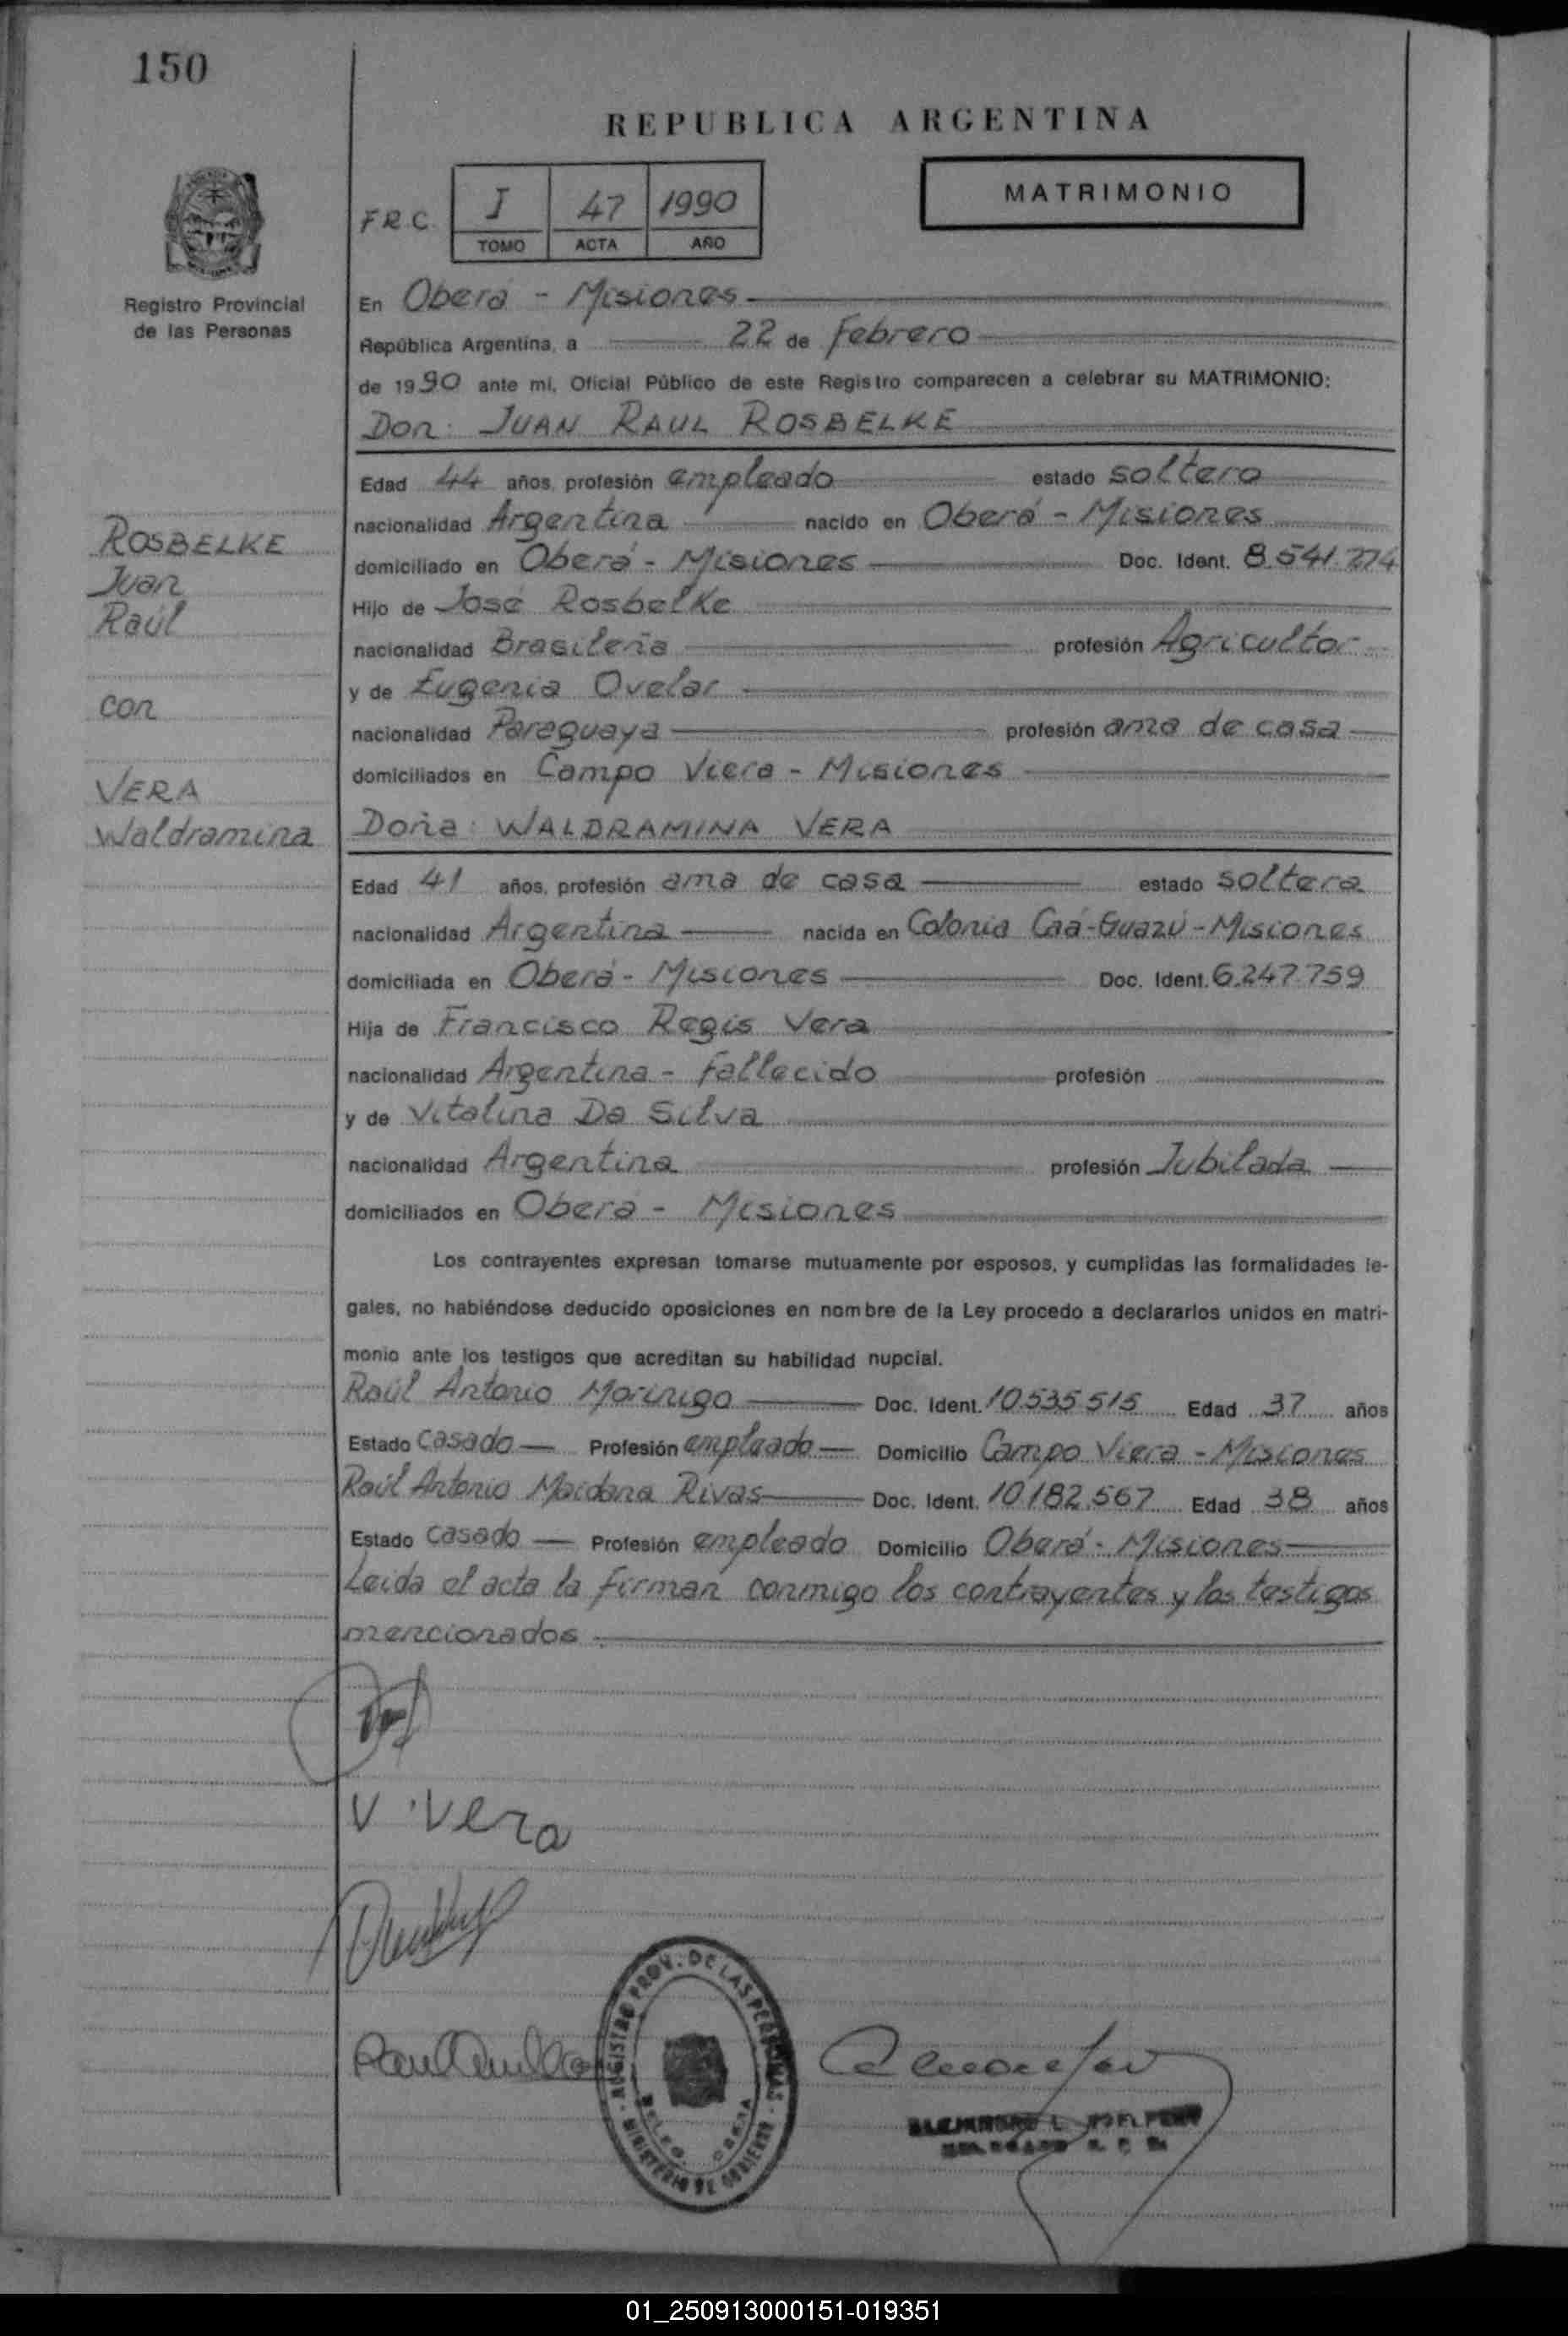 150
REPUBLICA ARGENTINA
MATRIMONIO
F.R.C. I 47 1990
TOMO ACTA AÑO
Registro Provincial
de las Personas
En Oberá - Misiones
República Argentina, a 22 de Febrero
de 1990 ante mí, Oficial Público de este Registro comparecen a celebrar su MATRIMONIO:
Don: JUAN RAUL ROSBELKE
Edad 44 años, profesión empleado estado soltero
nacionalidad Argentina nacido en Oberá - Misiones
ROSBELKE
domiciliado en Oberá - Misiones Doc. Ident. 8.541.274
Juan
Hijo de José Rosbelke
Raúl
nacionalidad Brasileña profesión Agricultor
y de Eugenia Ovelar
con
nacionalidad Paraguaya profesión ama de casa
domiciliados en Campo Viera - Misiones
VERA
Waldramina
Doña: WALDRAMINA VERA
Edad 41 años, profesión ama de casa estado soltera
nacionalidad Argentina nacida en Colonia Caá-Guazú - Misiones
domiciliada en Oberá - Misiones Doc. Ident. 6.247.759
Hija de Francisco Regis Vera
nacionalidad Argentina - fallecido profesión
y de Vitalina Da Silva
nacionalidad Argentina profesión Jubilada
domiciliados en Oberá - Misiones
Los contrayentes expresan tomarse mutuamente por esposos, y cumplidas las formalidades le-
gales, no habiéndose deducido oposiciones en nombre de la Ley procedo a declararlos unidos en matri-
monio ante los testigos que acreditan su habilidad nupcial.
Raúl Antonio Morinigo Doc. Ident. 10.535.515 Edad 37 años
Estado casado Profesión empleado Domicilio Campo Viera - Misiones
Raúl Antonio Maidana Rivas Doc. Ident. 10.182.567 Edad 38 años
Estado casado Profesión empleado Domicilio Oberá - Misiones
Leída el acta la firman conmigo los contrayentes y los testigos
mencionados.
V. Vera
REGISTRO PROV. DE LAS PERSONAS
MINISTERIO DE GOBIERNO
01_250913000151-019351